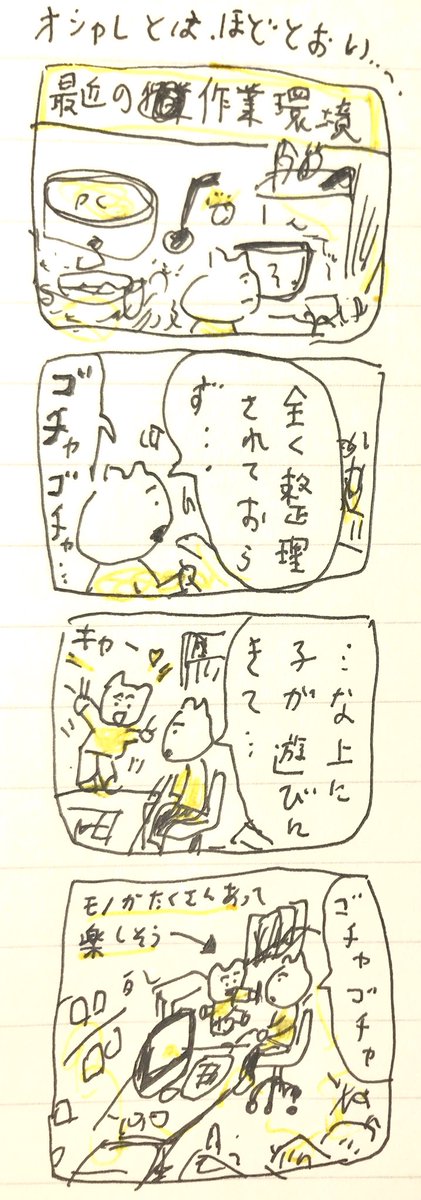 オシャレとは、ほどとおい…
最近の作業環境
PC
全く整理
されておら
ず…
ゴチャゴチャ…
…な上に
子が遊びに
きて…
キャー♥
ゴチャゴチャ
モノがたくさんあって
楽しそう→